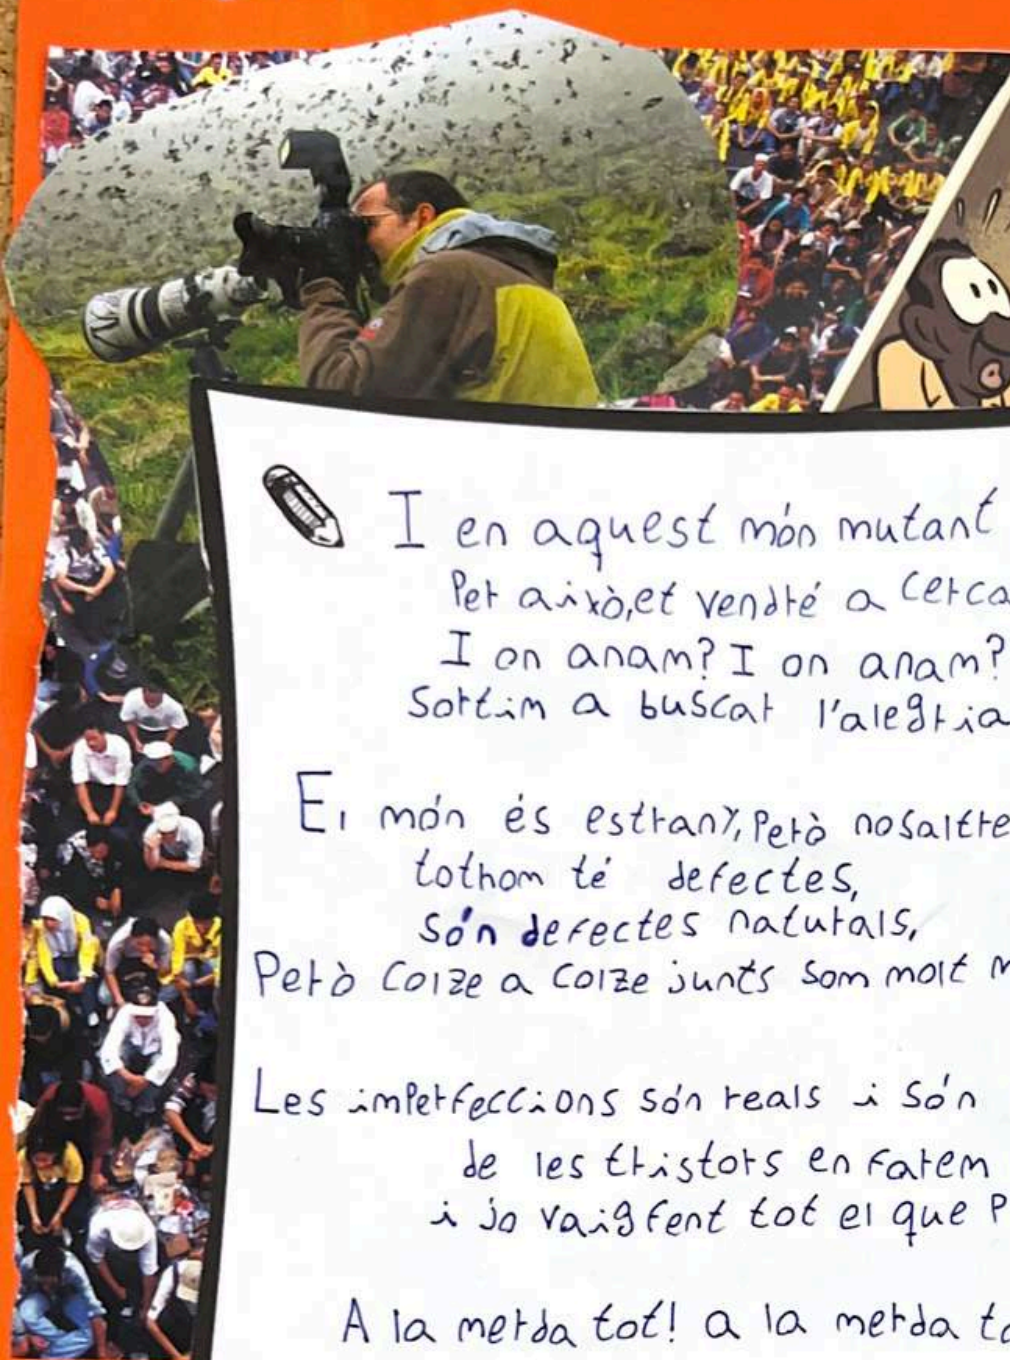 I en aquest món mutant
Per això, et vendré a cerca
I on anam? I on anam?
Sortim a buscar l'alegria
El món és estrany, Però nosaltre
tothom té defectes,
són defectes naturals,
Però colze a colze junts som molt
Les imperfeccions són reals i són
de les tristors en farem
i jo vaig fent tot el que P
A la merda tot! a la merda to